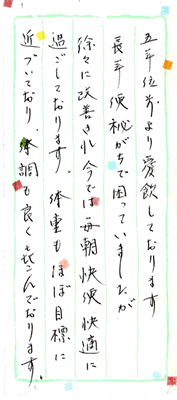 五年位前より愛飲しております
長年 便秘がちで困っていましたが
徐々に改善され今では毎朝快便快適に
過ごしております。体重もほぼ目標に
近づいており、体調も良く喜んでおります。